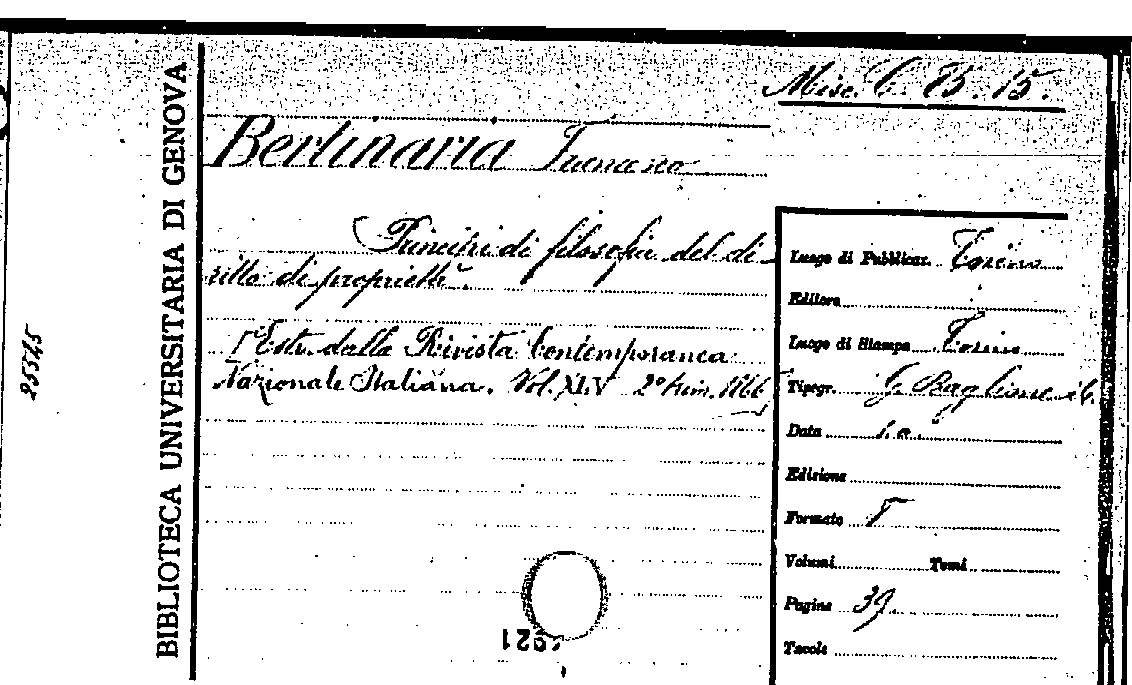 Misc. C. B. 15.
Bertinaria
Principi di filosofia del di-
ritto di proprietà.
[Estr. dalla Rivista Contemporanea
Nazionale Italiana. Vol. XLV 2º trim. 1866]
BIBLIOTECA UNIVERSITARIA DI GENOVA
25545
Luogo di Pubblicaz. Torino
Editore
Luogo di Stampa Torino
Tipogr. G. Baglione e C.
Data s. a.
Edizione
Formato
Volumi Tomi
Pagine 39.
Tavole